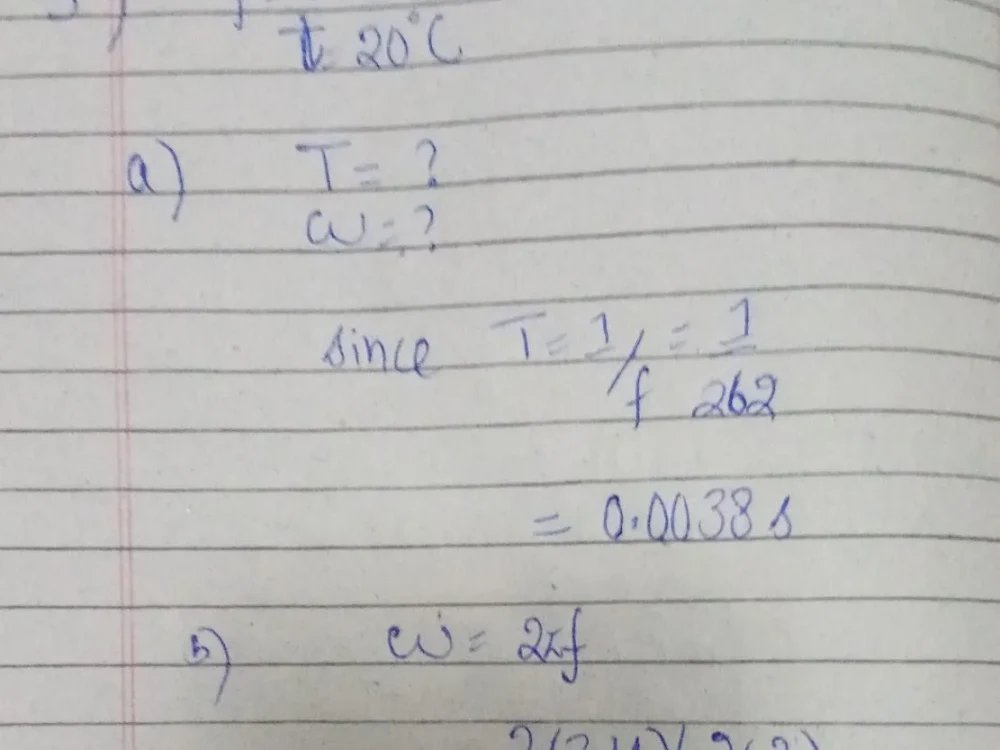 t 20°C
a) T = ?
ω = ?
since T = 1/f = 1/262
= 0.0038 s
b) ω = 2πf